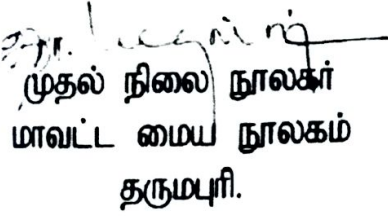 முதல் நிலை நூலகர்
மாவட்ட மைய நூலகம்
தருமபுரி.